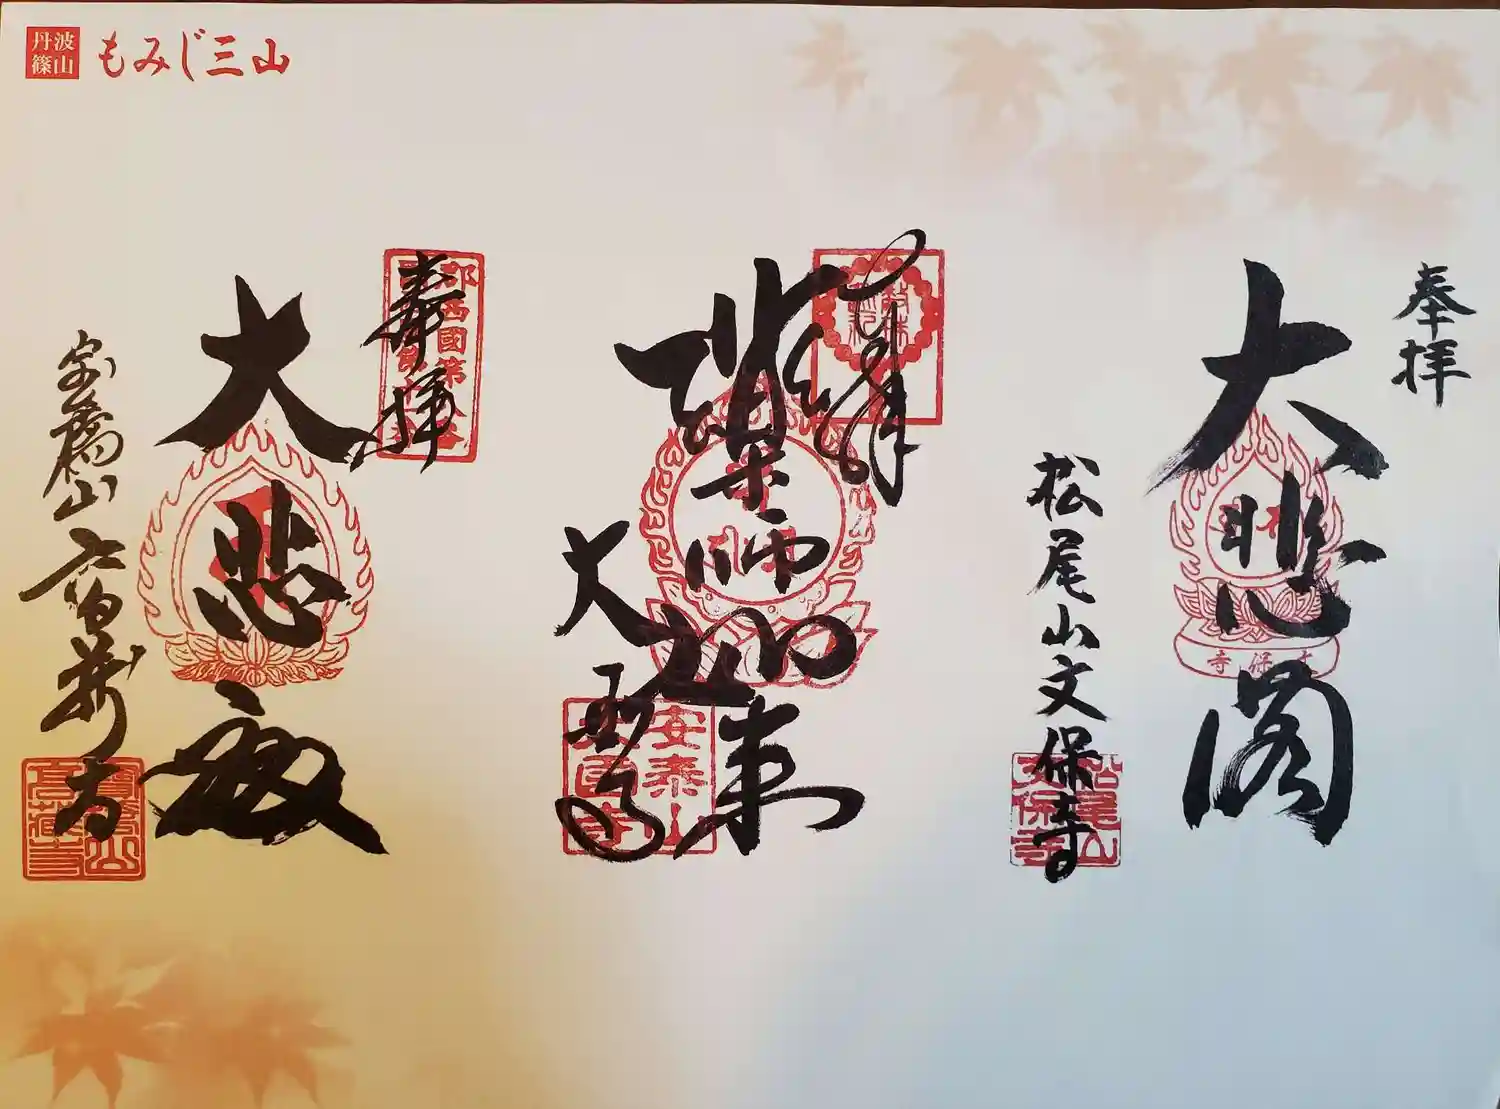 丹波篠山
もみじ三山
奉拝
大悲閣
松尾山文保寺
松尾山文保寺
文保寺
奉拝
薬師如来
大国寺
安泰山大国寺
奉拝
大悲殿
宝橋山高蔵寺
寶橋山高蔵寺